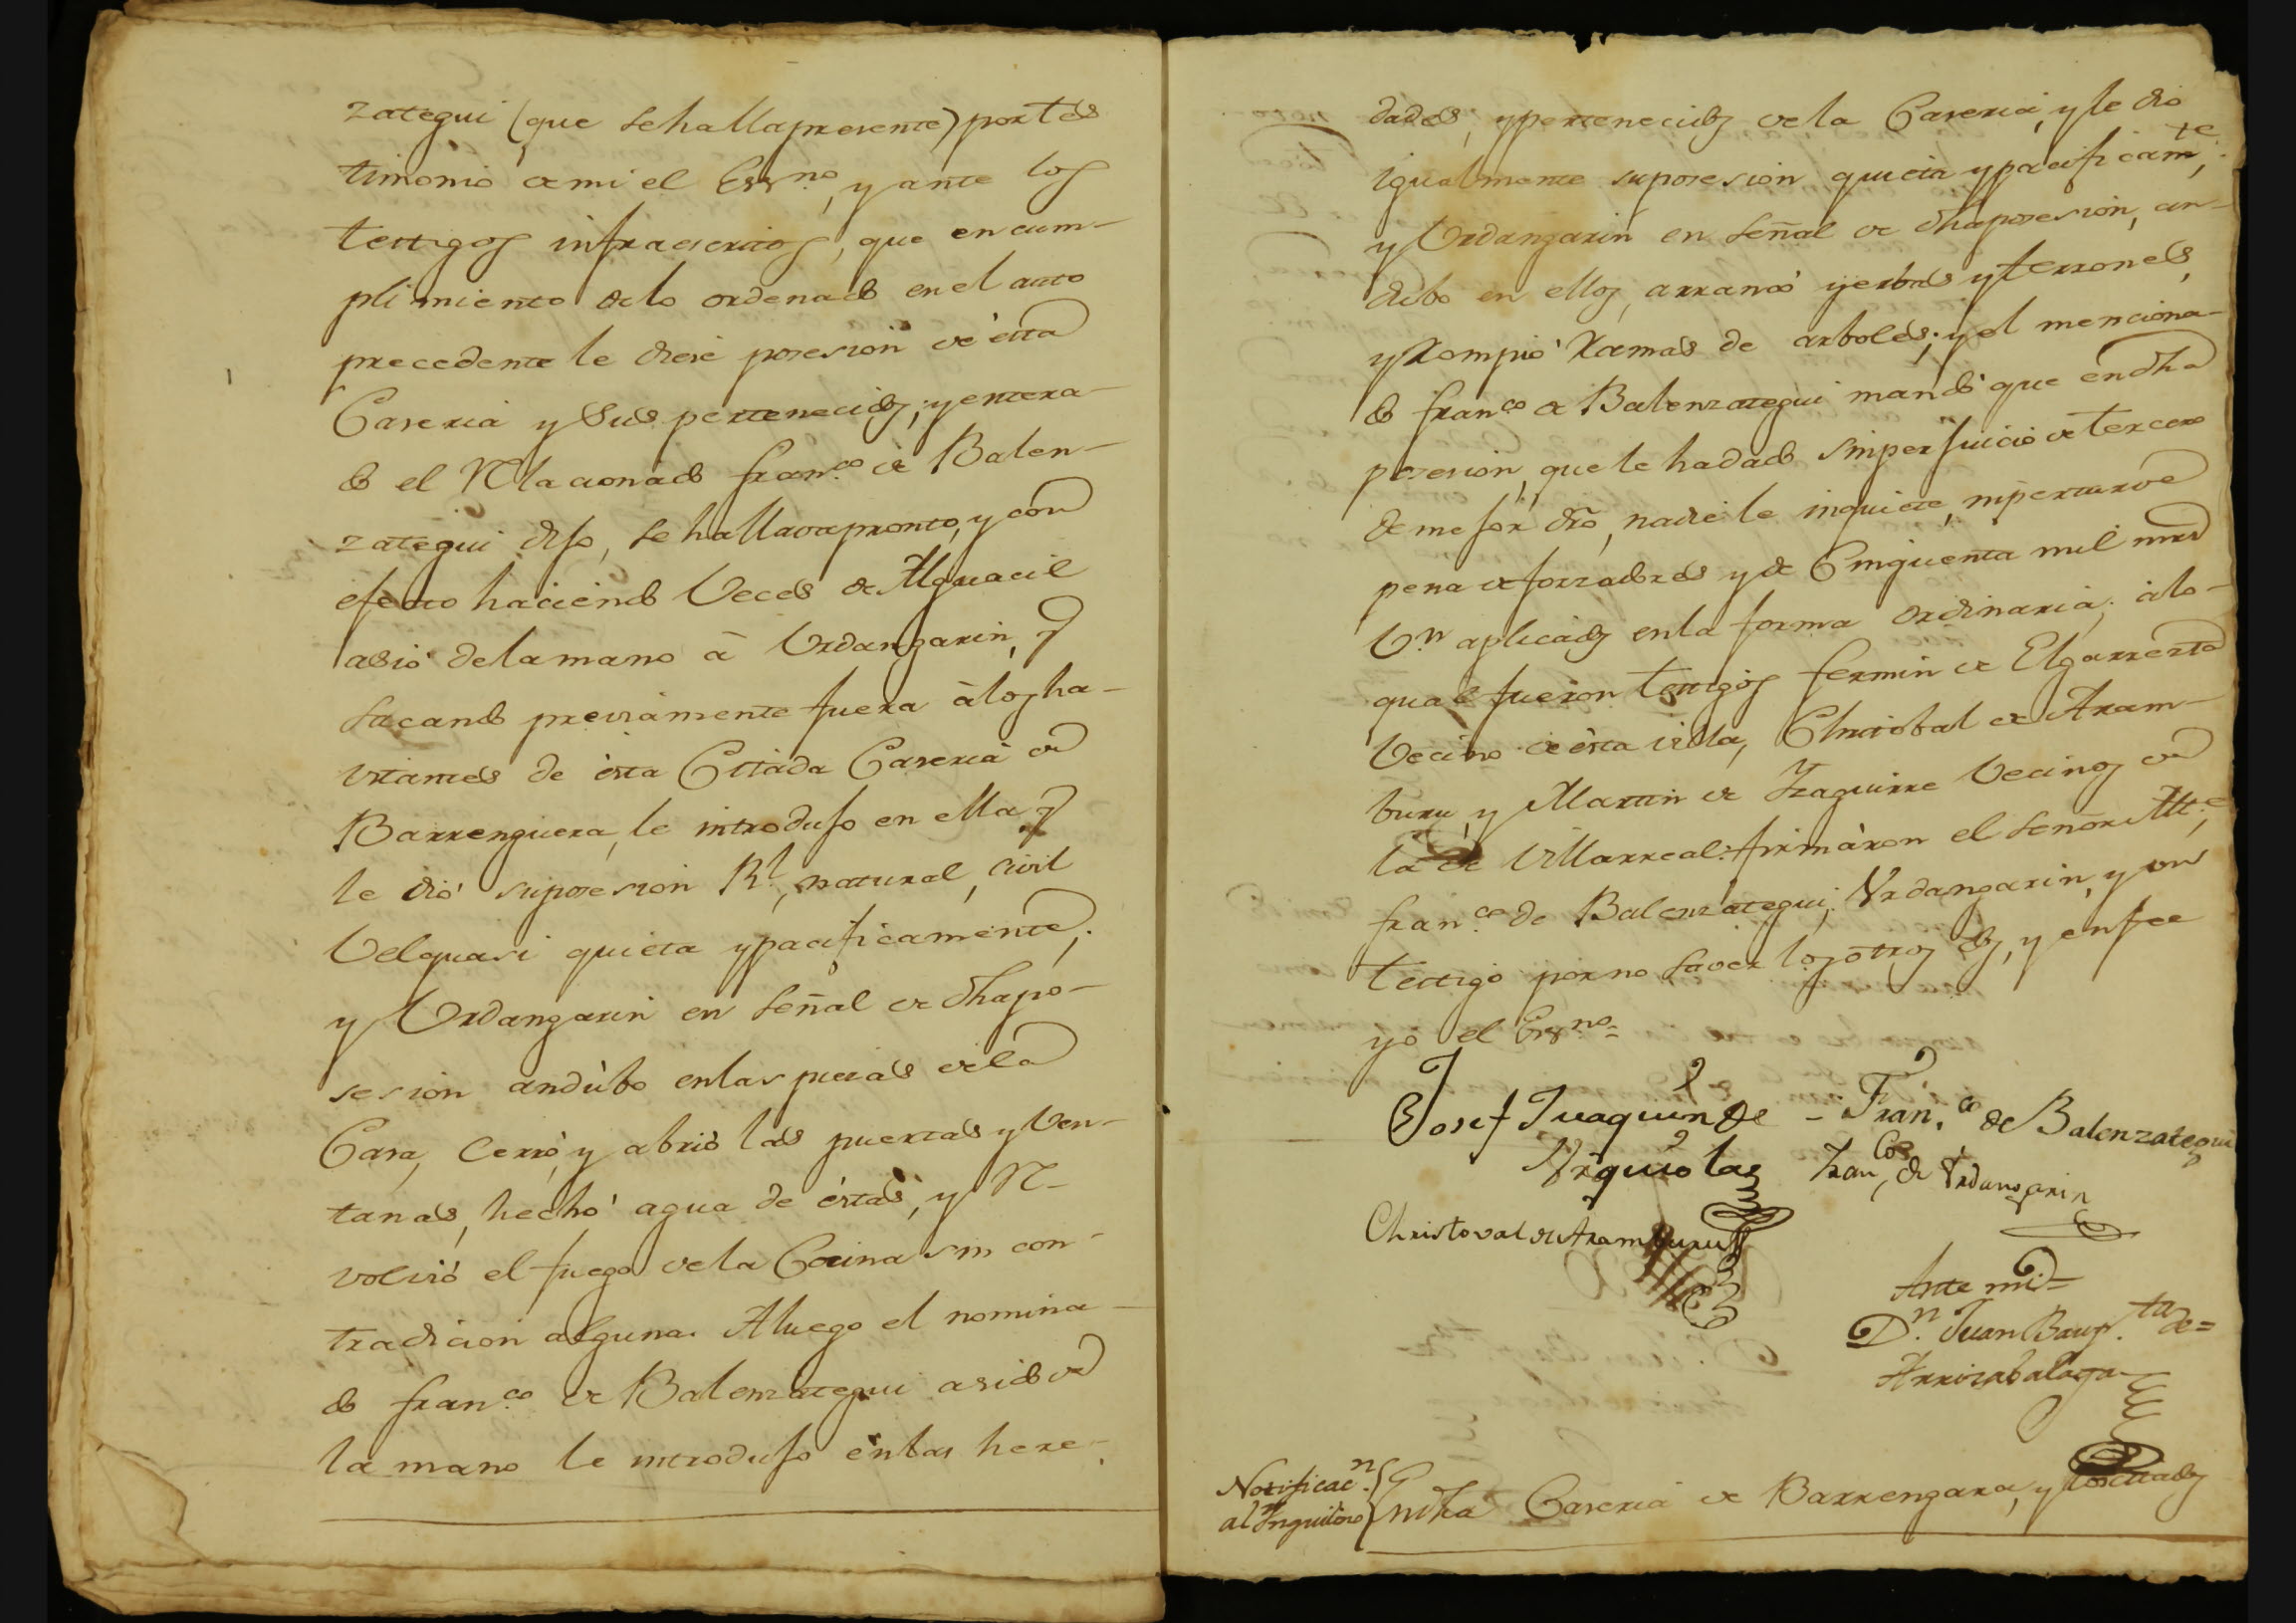 zategui (que se halla presente) por tes
timonio de mi el Essno, y ante los
testigos infraescritos, que en cum-
plimiento de lo ordenado en el auto
precedente le diese posesion de esta
Caseria y sus pertenecidos; y entera-
do el Relacionado Franco de Balen-
zategui dijo, se hallava pronto, y con
efecto haciendo Veces de Alguacil
asió de la mano à Urdangarin, y
sacando previamente fuera à los ha-
vitantes de ésta Citada Caseria de
Barrenguera, le introdujo en ella, y
le dió su posesion Rl, natural, civil
Velquasi quieta y pacificamente,
y Urdangarin en señal de dha po-
sesion andúbo en las piezas de la
Casa, Cerró, y abrió las puertas y Ven-
tanas, hechó agua de éstas, y Re-
volvió el fuego de la Cocina sin con-
tradicion alguna. Aluego el nomina-
do Franco de Balenzategui asido de
la mano le introdujo en las here-
dades, y pertenecidos de la Caseria, y le dio
igualmente su posesion quieta y pacificamte,
y Urdangarin en señal de dha posesion, an-
dubo en ellos, arrancó yerbas y terrones,
y Rompió Ramas de arboles; y el menciona-
do Franco de Balenzategui mandó que en dha
posesion, que le ha dado sin perjuicio de tercero
de mejor dro, nadie le inquiete, ni perturve
pena de forzadores y de Cinquenta mil mrs
Vn aplicados en la forma ordinaria; à lo-
qual fueron testigos Fermin de Elgarresta
Vecino de ésta villa, Christobal de Aram-
buru, y Martin de Yzaguirre Vecinos de
la de Villarreal: firmáron el Señor Alte,
Franco de Balenzategui, Urdangarin, y un
testigo por no saver los otros dos, y en fee
yó el Essno=
Josef Juaquin de - Franco de Balenzategui
Urquiolas Franco de Urdangarin
Christoval de Aramburu
Ante mi=
Dn Juan Bauptta de=
Arrizabalaga
Notificacn
al Ynquilino } En dha Caseria de Barrengara, y los citados